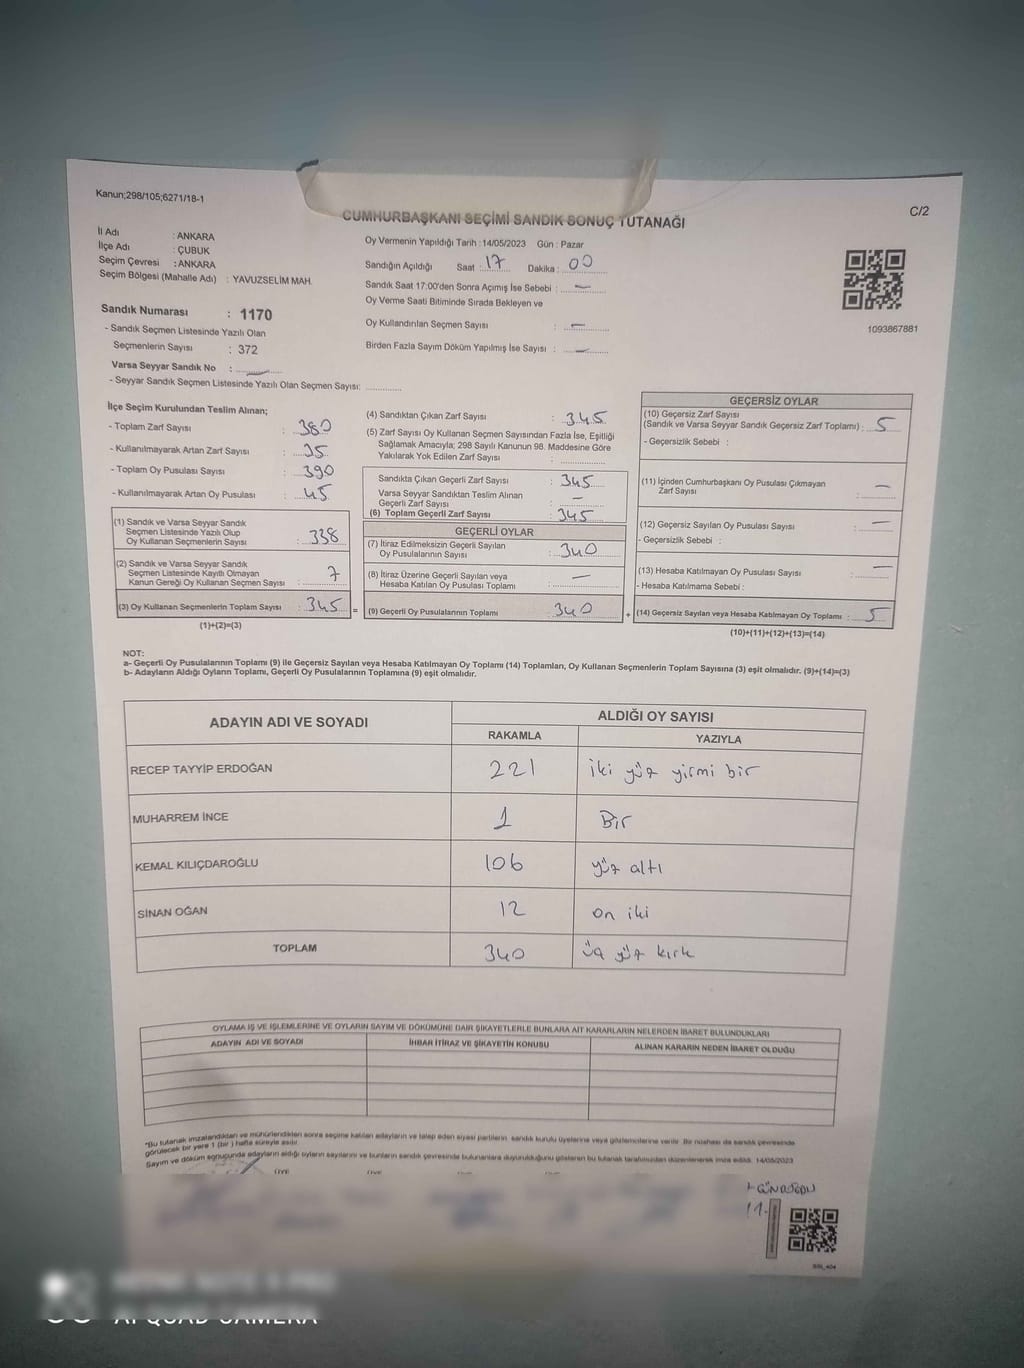 Kanun;298/105;6271/18-1
C/2
CUMHURBAŞKANI SEÇİMİ SANDIK SONUÇ TUTANAĞI
İl Adı : ANKARA
İlçe Adı : ÇUBUK
Seçim Çevresi : ANKARA
Seçim Bölgesi (Mahalle Adı) : YAVUZSELİM MAH.
Oy Vermenin Yapıldığı Tarih : 14/05/2023 Gün : Pazar
Sandığın Açıldığı Saat : 17 Dakika : 00
Sandık Saat 17:00'den Sonra Açımış İse Sebebi : —
Oy Verme Saati Bitiminde Sırada Bekleyen ve
Oy Kullandırılan Seçmen Sayısı : —
Birden Fazla Sayım Döküm Yapılmış İse Sayısı : —
1093867881
Sandık Numarası : 1170
- Sandık Seçmen Listesinde Yazılı Olan
Seçmenlerin Sayısı : 372
Varsa Seyyar Sandık No : —
- Seyyar Sandık Seçmen Listesinde Yazılı Olan Seçmen Sayısı:
İlçe Seçim Kurulundan Teslim Alınan;
- Toplam Zarf Sayısı : 380
- Kullanılmayarak Artan Zarf Sayısı : 35
- Toplam Oy Pusulası Sayısı : 390
- Kullanılmayarak Artan Oy Pusulası : 45
(1) Sandık ve Varsa Seyyar Sandık
Seçmen Listesinde Yazılı Olup
Oy Kullanan Seçmenlerin Sayısı : 338
(2) Sandık ve Varsa Seyyar Sandık
Seçmen Listesinde Kayıtlı Olmayan
Kanun Gereği Oy Kullanan Seçmen Sayısı : 7
(3) Oy Kullanan Seçmenlerin Toplam Sayısı : 345 =
(1)+(2)=(3)
(4) Sandıktan Çıkan Zarf Sayısı : 345
(5) Zarf Sayısı Oy Kullanan Seçmen Sayısından Fazla İse, Eşitliği
Sağlamak Amacıyla; 298 Sayılı Kanunun 98. Maddesine Göre
Yakılarak Yok Edilen Zarf Sayısı :
Sandıkta Çıkan Geçerli Zarf Sayısı : 345
Varsa Seyyar Sandıktan Teslim Alınan
Geçerli Zarf Sayısı : —
(6) Toplam Geçerli Zarf Sayısı : 345
GEÇERLİ OYLAR
(7) İtiraz Edilmeksizin Geçerli Sayılan
Oy Pusulalarının Sayısı : 340
(8) İtiraz Üzerine Geçerli Sayılan veya
Hesaba Katılan Oy Pusulası Toplamı : —
(9) Geçerli Oy Pusulalarının Toplamı : 340 +
GEÇERSİZ OYLAR
(10) Geçersiz Zarf Sayısı
(Sandık ve Varsa Seyyar Sandık Geçersiz Zarf Toplamı) : 5
- Geçersizlik Sebebi :
(11) İçinden Cumhurbaşkanı Oy Pusulası Çıkmayan
Zarf Sayısı : —
(12) Geçersiz Sayılan Oy Pusulası Sayısı : —
- Geçersizlik Sebebi :
(13) Hesaba Katılmayan Oy Pusulası Sayısı : —
- Hesaba Katılmama Sebebi :
(14) Geçersiz Sayılan veya Hesaba Katılmayan Oy Toplamı : 5
(10)+(11)+(12)+(13)=(14)
NOT:
a- Geçerli Oy Pusulalarının Toplamı (9) ile Geçersiz Sayılan veya Hesaba Katılmayan Oy Toplamı (14) Toplamları, Oy Kullanan Seçmenlerin Toplam Sayısına (3) eşit olmalıdır. (9)+(14)=(3)
b- Adayların Aldığı Oyların Toplamı, Geçerli Oy Pusulalarının Toplamına (9) eşit olmalıdır.
ADAYIN ADI VE SOYADI
ALDIĞI OY SAYISI
RAKAMLA YAZIYLA
RECEP TAYYİP ERDOĞAN 221 iki yüz yirmi bir
MUHARREM İNCE 1 Bir
KEMAL KILIÇDAROĞLU 106 yüz altı
SİNAN OĞAN 12 on iki
TOPLAM 340 üç yüz kırk
OYLAMA İŞ VE İŞLEMLERİNE VE OYLARIN SAYIM VE DÖKÜMÜNE DAİR ŞİKAYETLERLE BUNLARA AİT KARARLARIN NELERDEN İBARET BULUNDUKLARI
ADAYIN ADI VE SOYADI İHBAR İTİRAZ VE ŞİKAYETİN KONUSU ALINAN KARARIN NEDEN İBARET OLDUĞU
*Bu tutanak imzalandıktan ve mühürlendikten sonra seçime katılan adayların ve talep eden siyasi partilerin sandık kurulu üyelerine veya gözlemcilerine verilir. Bir nüshası da sandık çevresinde
görülecek bir yere 1 (bir) hafta süreyle asılır.
Sayım ve döküm sonucunda adayların aldığı oyların sayılarını ve bunların sandık çevresinde bulunanlara duyurulduğunu gösteren bu tutanak tarafımızdan düzenlenerek imza edildi. 14/05/2023
AI QUAD CAMERA